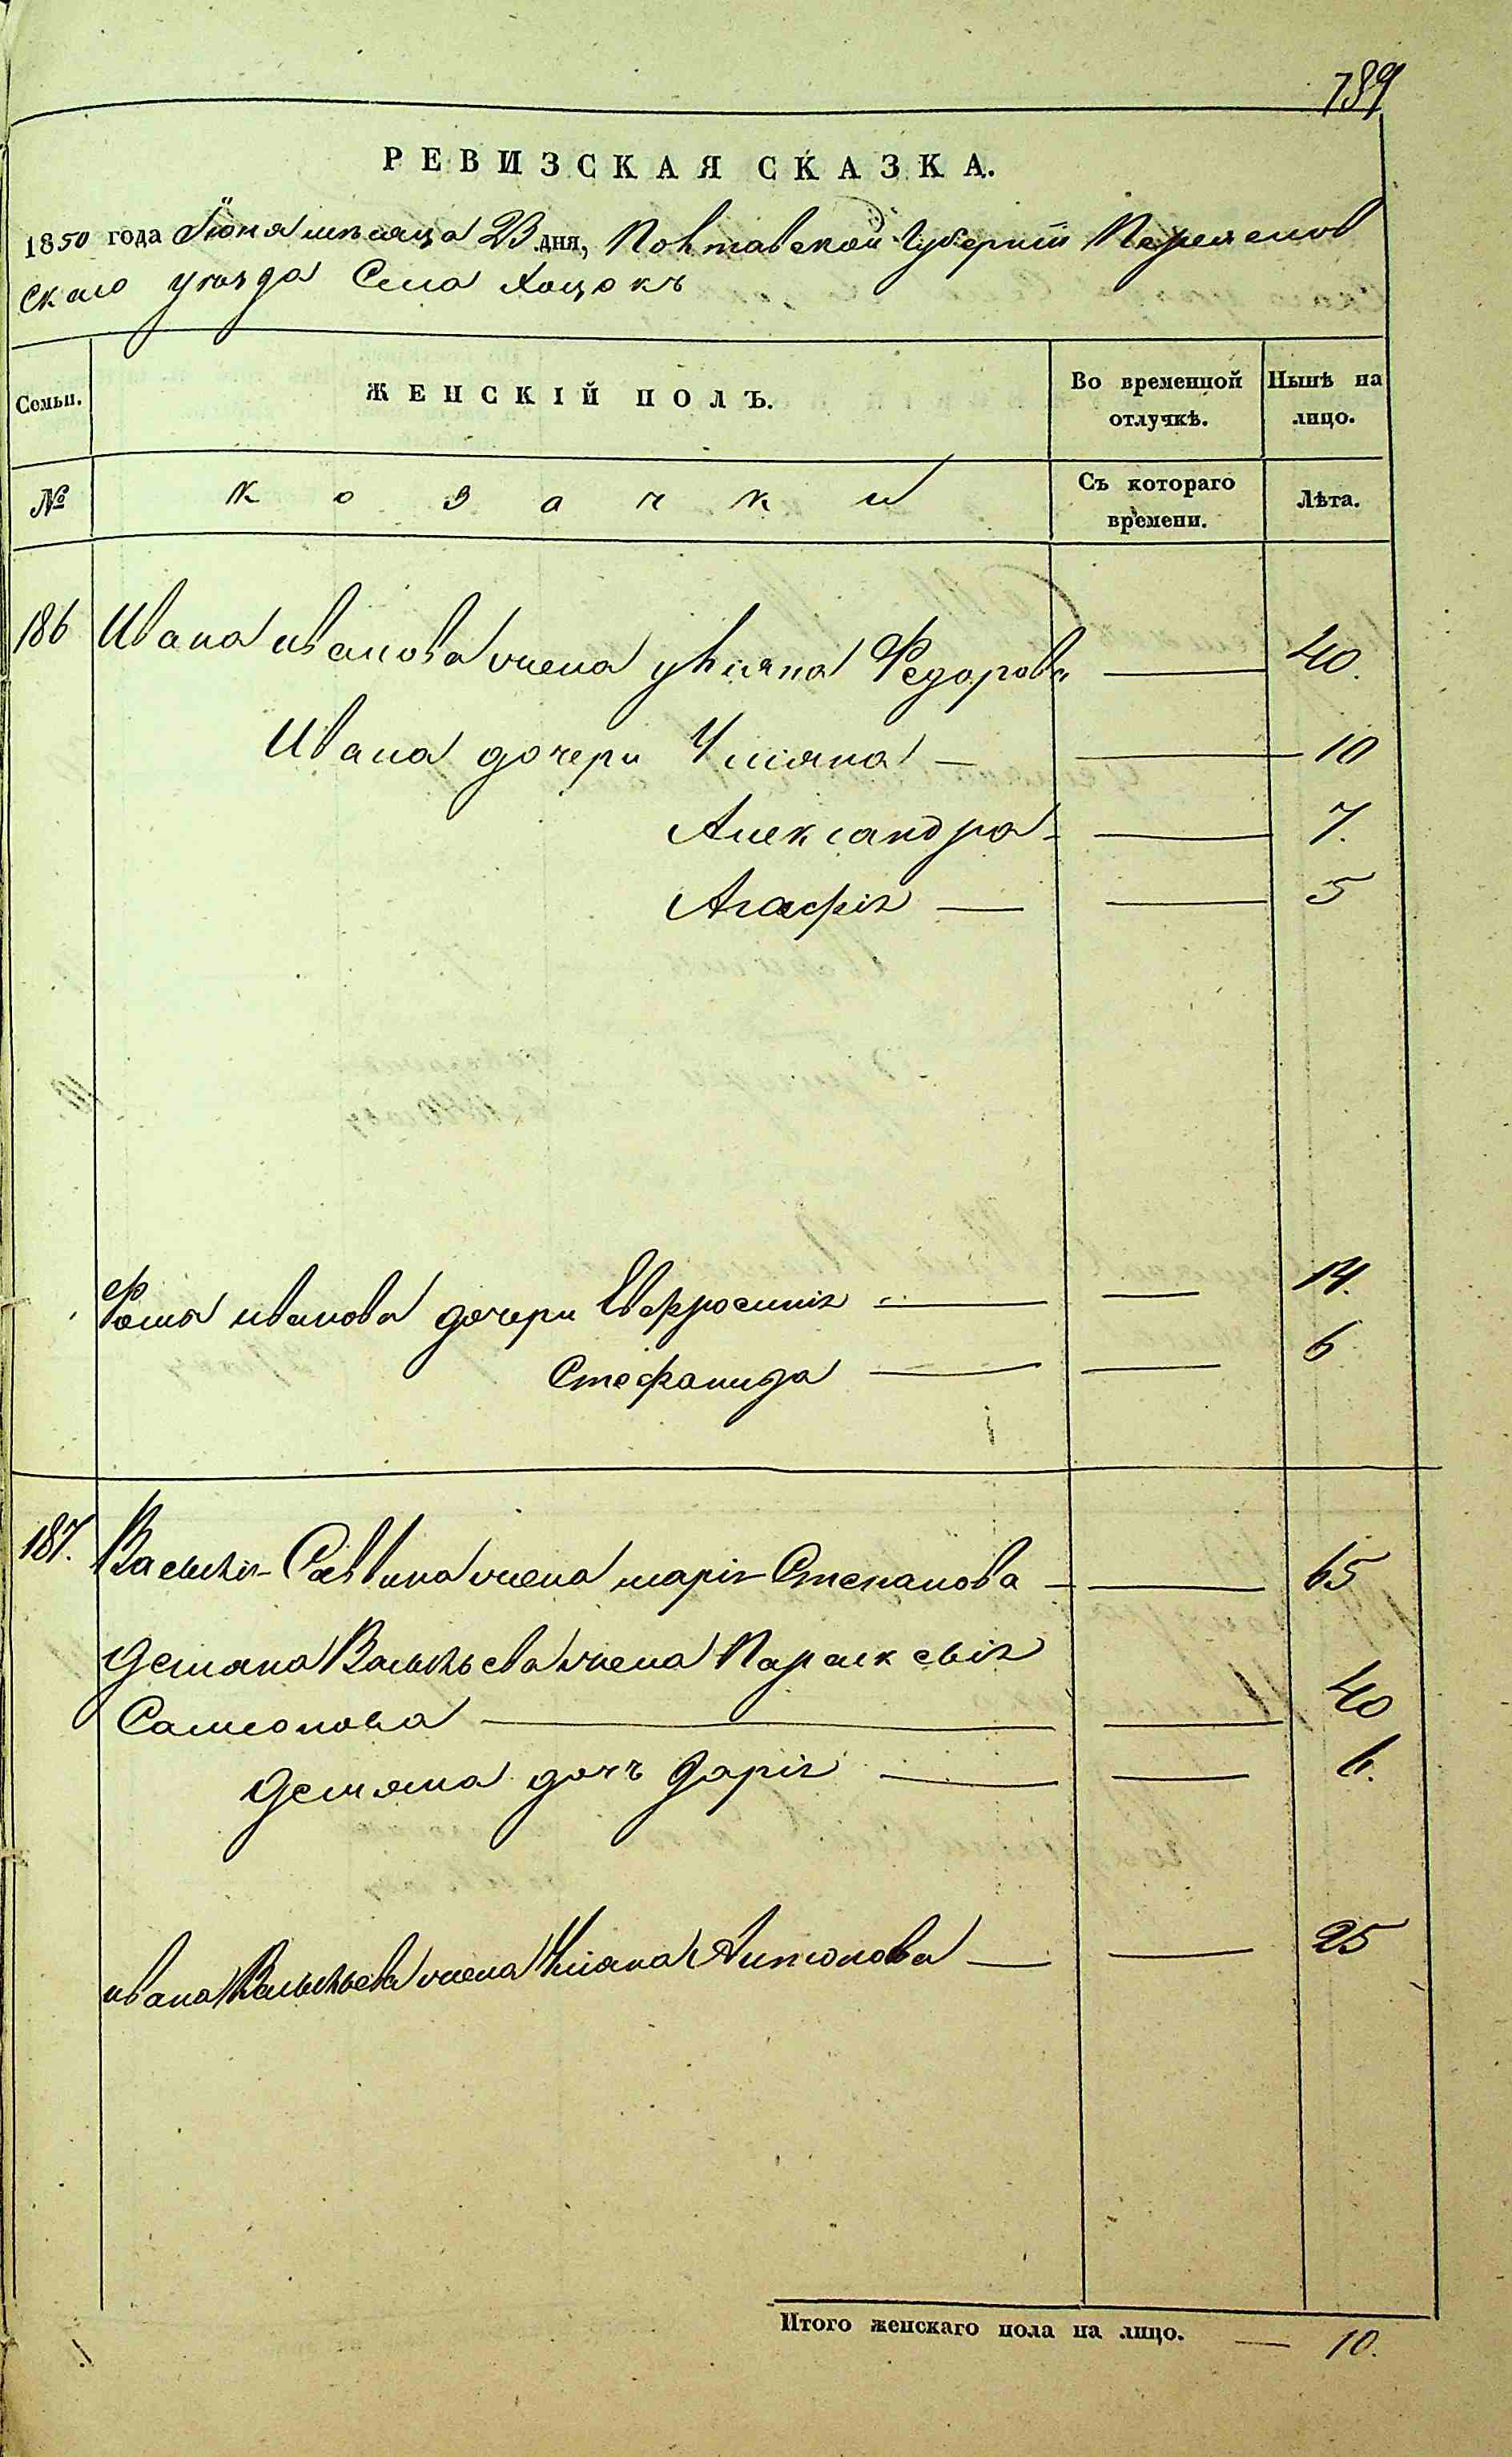 789
РЕВИЗСКАЯ СКАЗКА.
1850 года Іюня мѣсяца 23 дня, Полтавской Губерніи Переяслов
скаго уезда Села Хоцокъ
Семьи. ЖЕНСКІЙ ПОЛЪ. Во временной отлучкѣ. Нынѣ на лицо.
№ Козачки Съ котораго времени. Лѣта.
186 Ивана Иванова жена Ульяна Федорова — 40.
Ивана дочери Ульяна — — 10
Александра — — 7.
Агафія — — 5
Фомы Иванова дочери Евфросинія — — 14.
Стефанида — — 6
187. Василія Саввина жена Марія Степанова — — 65
Демяна Васильева жена Параскевія
Самсонова — — 40
Демяна дочъ Дарія — — 6.
Ивана Васильева жена Уліана Антонова — — 25
Итого женскаго пола на лицо. — 10.